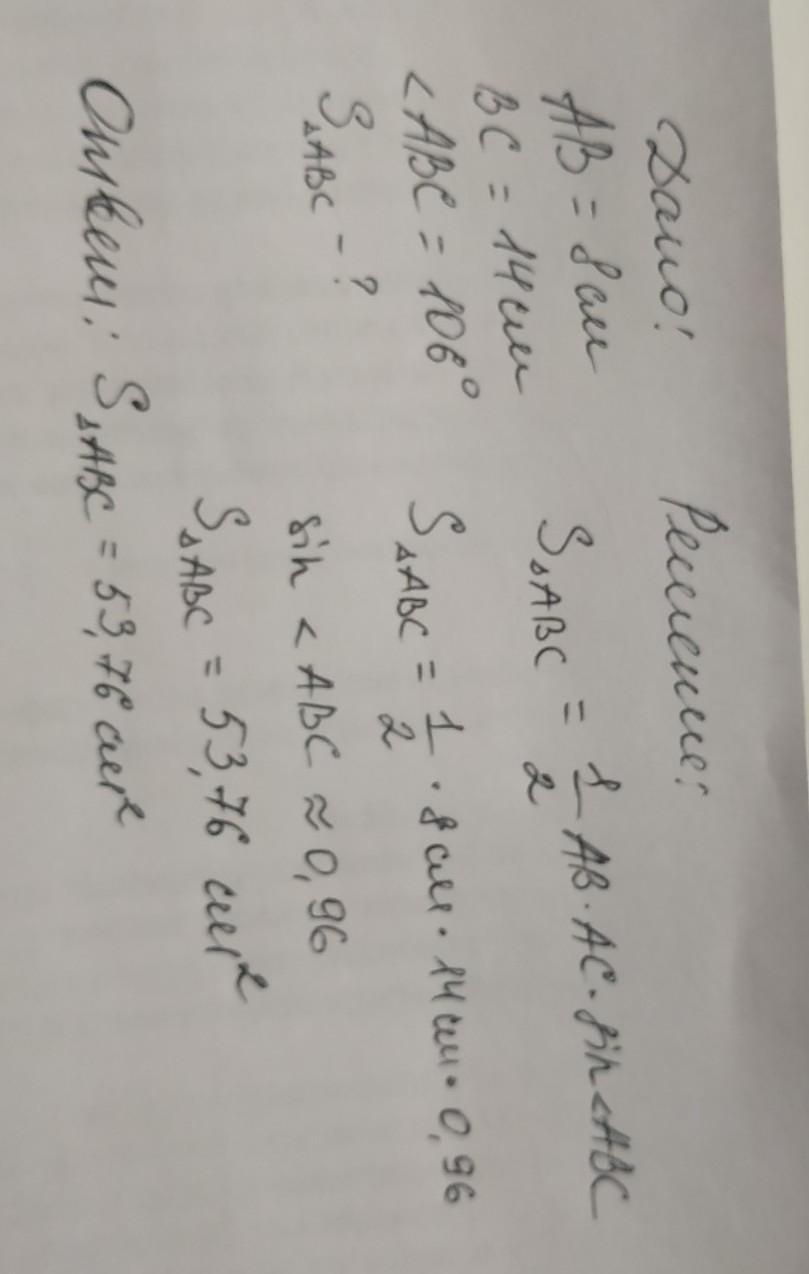 Дано:
AB = 8 см
BC = 14 см
<ABC = 106°
S△ABC - ?
Решение:
S△ABC = 1/2 AB · AC · sin <ABC
S△ABC = 1/2 · 8 см · 14 см · 0,96
sin < ABC ≈ 0,96
S△ABC = 53,76 см²
Ответ: S△ABC = 53,76 см²